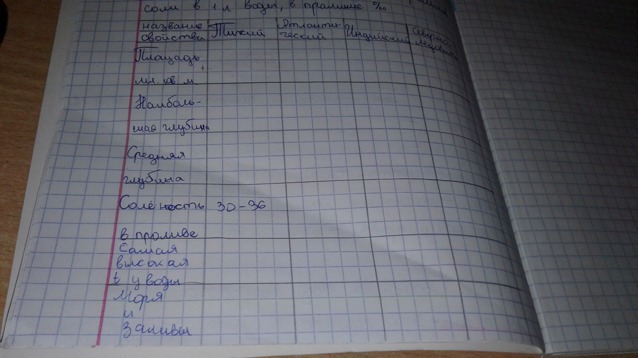 соли в 1 л воды, в промилле ‰
название
свойства Тихий Атланти-
ческий Индийский
Площадь
мл. кв. м.
Наиболь-
шая глубина
Средняя
глубина
Солёность 30-36
в промиве
Самая
высокая
t у воды
Моря
и
Заливы